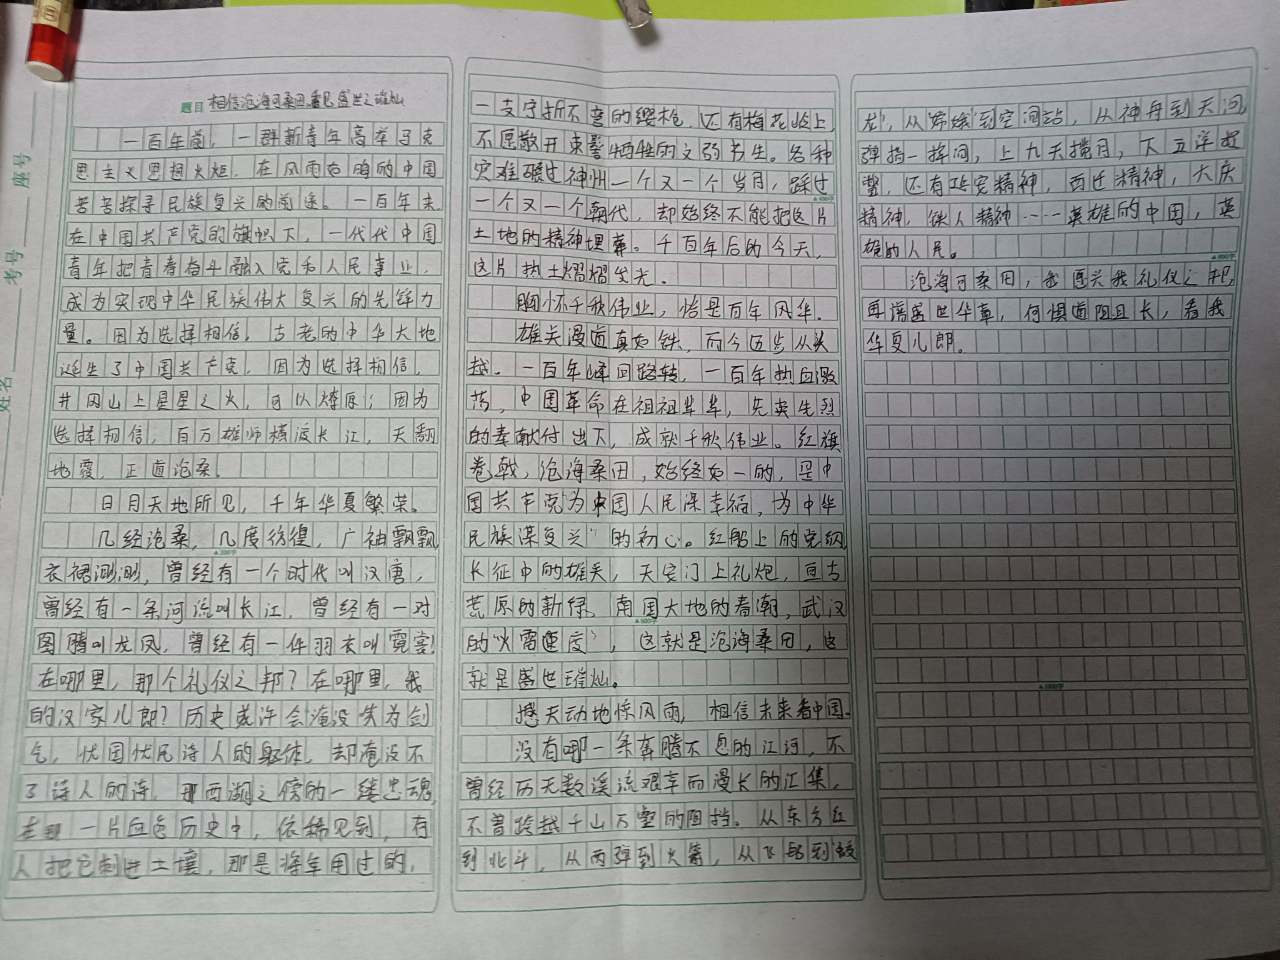 座号
考号
姓名
题目 相信沧海可桑田,看见盛世之璀灿
一百年前,一群新青年高举马克
思主义思想火炬,在风雨如晦的中国
苦苦探寻民族复兴的前途。一百年来
在中国共产党的旗帜下,一代代中国
青年把青春奋斗融入党和人民事业,
成为实现中华民族伟大复兴的先锋力
量。因为选择相信,古老的中华大地
诞生了中国共产党,因为选择相信,
井冈山上星星之火,可以燎原;因为
选择相信,百万雄师横渡长江,天翻
地覆,正道沧桑。
日月天地所见,千年华夏繁荣。
几经沧桑,几度彷徨,广袖飘飘,
衣裙渺渺,曾经有一个时代叫汉唐,
曾经有一条河流叫长江,曾经有一对
图腾叫龙凤,曾经有一件羽衣叫霓裳!
在哪里,那个礼仪之邦?在哪里,我
的汉家儿郎?历史或许会淹没失为剑
气,忧国忧民诗人的躯体,却淹没不
了诗人的诗,那西湖之傍的一缕忠魂,
一片血色历史中,依稀见到,有
人把它刺进土壤,那是将军用过的,
一支宁折不弯的缨枪,还有梅花岭上,
不愿散开束髻牺牲的文弱书生。各种
灾难碾过神州一个又一个岁月,踩过
一个又一个朝代,却始终不能把这片
土地的精神埋葬。千百年后的今天,
这片热土熠熠发光。
胸怀千秋伟业,恰是百年风华。
雄关漫道真如铁,而今迈步从头
越。一百年峰回路转,一百年热血激
荡,中国革命在祖祖辈辈,先英先烈
的奉献付出下,成就千秋伟业。红旗
卷戟,沧海桑田,始终如一的,是中
国共产党为中国人民谋幸福,为中华
民族谋复兴"的初心。红船上的党纲,
长征中的雄关,天安门上礼炮,亘古
荒原的新绿,南国大地的春潮,武汉
的"火雷速度",这就是沧海桑田,这
就是盛世璀灿。
撼天动地惊风雨,相信未来看中国。
没有哪一条奔腾不息的江河,不
曾经历无数溪流艰辛而漫长的汇集,
不曾跨越千山万壑的阻挡。从东方红
到北斗,从两弹到火箭,从飞船到"蛟
龙",从"嫦娥"到空间站,从神舟到天问,
弹指一挥间,上九天揽月,下五洋捉
鳖,还有延安精神,西迁精神,大庆
精神,铁人精神……英雄的中国,英
雄的人民。
沧海可桑田,我复兴我礼仪之邦,
再谱盛世华章,何惧道阻且长,看我
华夏儿郎。